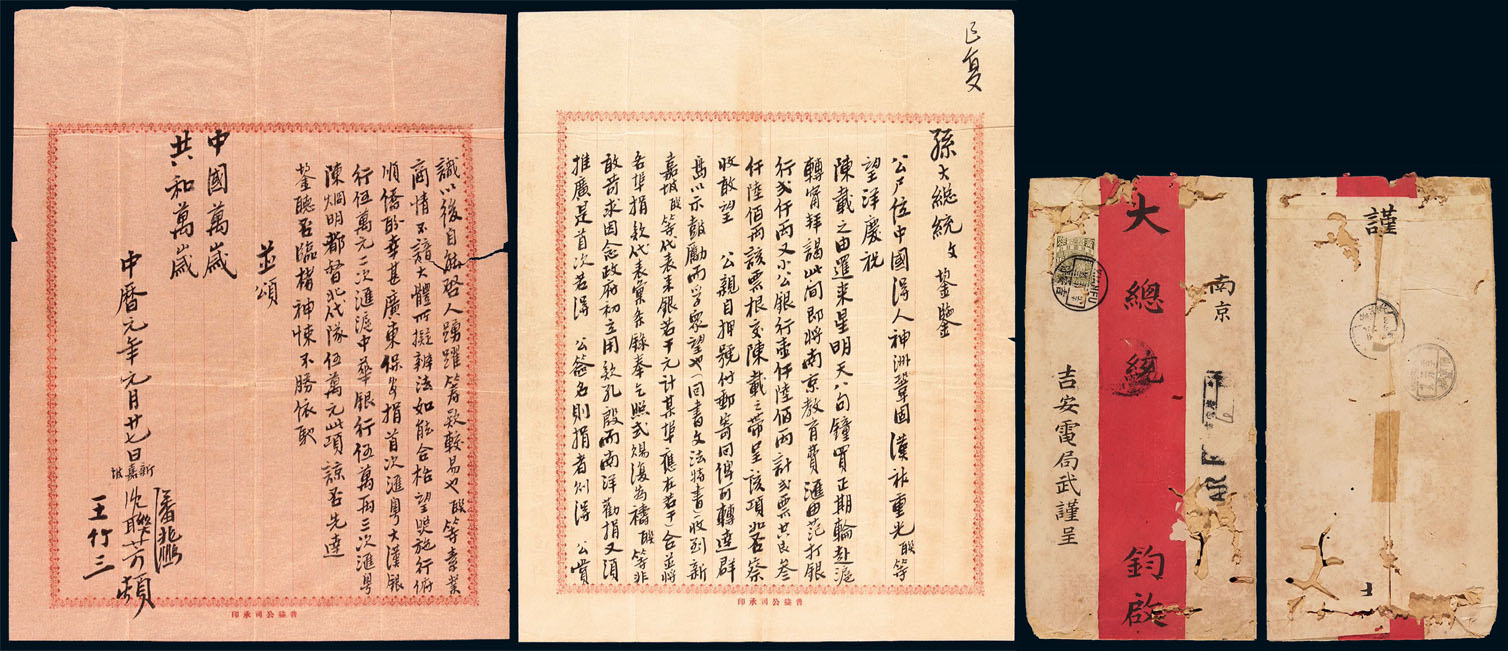 已复
孫大總統文鋻鑒
公尸位中國得人神洲鞏固漢族重光聯等
望洋慶祝
陳載之由暹来星明天八句鐘買正期輪赴滬
轉甯拜謁此间即將南京教育費滙由范打银
行弍仟两又小公銀行壹仟陸佰两計弍票共艮叁
仟陸佰両該票根交陳載之帶呈該項如否察
收敢望 公親自押號付郵寄回俾可轉達群
島以示鼓勵而孚衆望也(回書文法特書)收到新
嘉坡聯等代表来銀若干元計某埠應左若干)合並將
各埠捐款代表彙条錄奉乞照式賜復為禱聯等非
敢苛求因念政府初立用欵孔殷而南洋勸捐又須
推廣是首次若得 公簽名則捐者刻得 公賞
普益公司承印
識以後自能啓人踴躍籌欵較易也聯等素業
商情不諳大體所擬辦法如能合格望奨施行俯
順僑盼幸甚廣東保安捐首次滙粤大漢银
行伍萬元二次滙滬中華银行伍萬両三次滙粤
陳烱明都督北伐隊伍萬元此項諒否先達
鋻聽否臨楮神悚不勝依
並頌
中國萬歲
共和萬歲
中曆元年元月廿七日
新嘉坡
潘兆鵬
沈聯芳頓
王竹三
普益公司承印
南京
大總統鈞啟
吉安電局武謹呈
謹